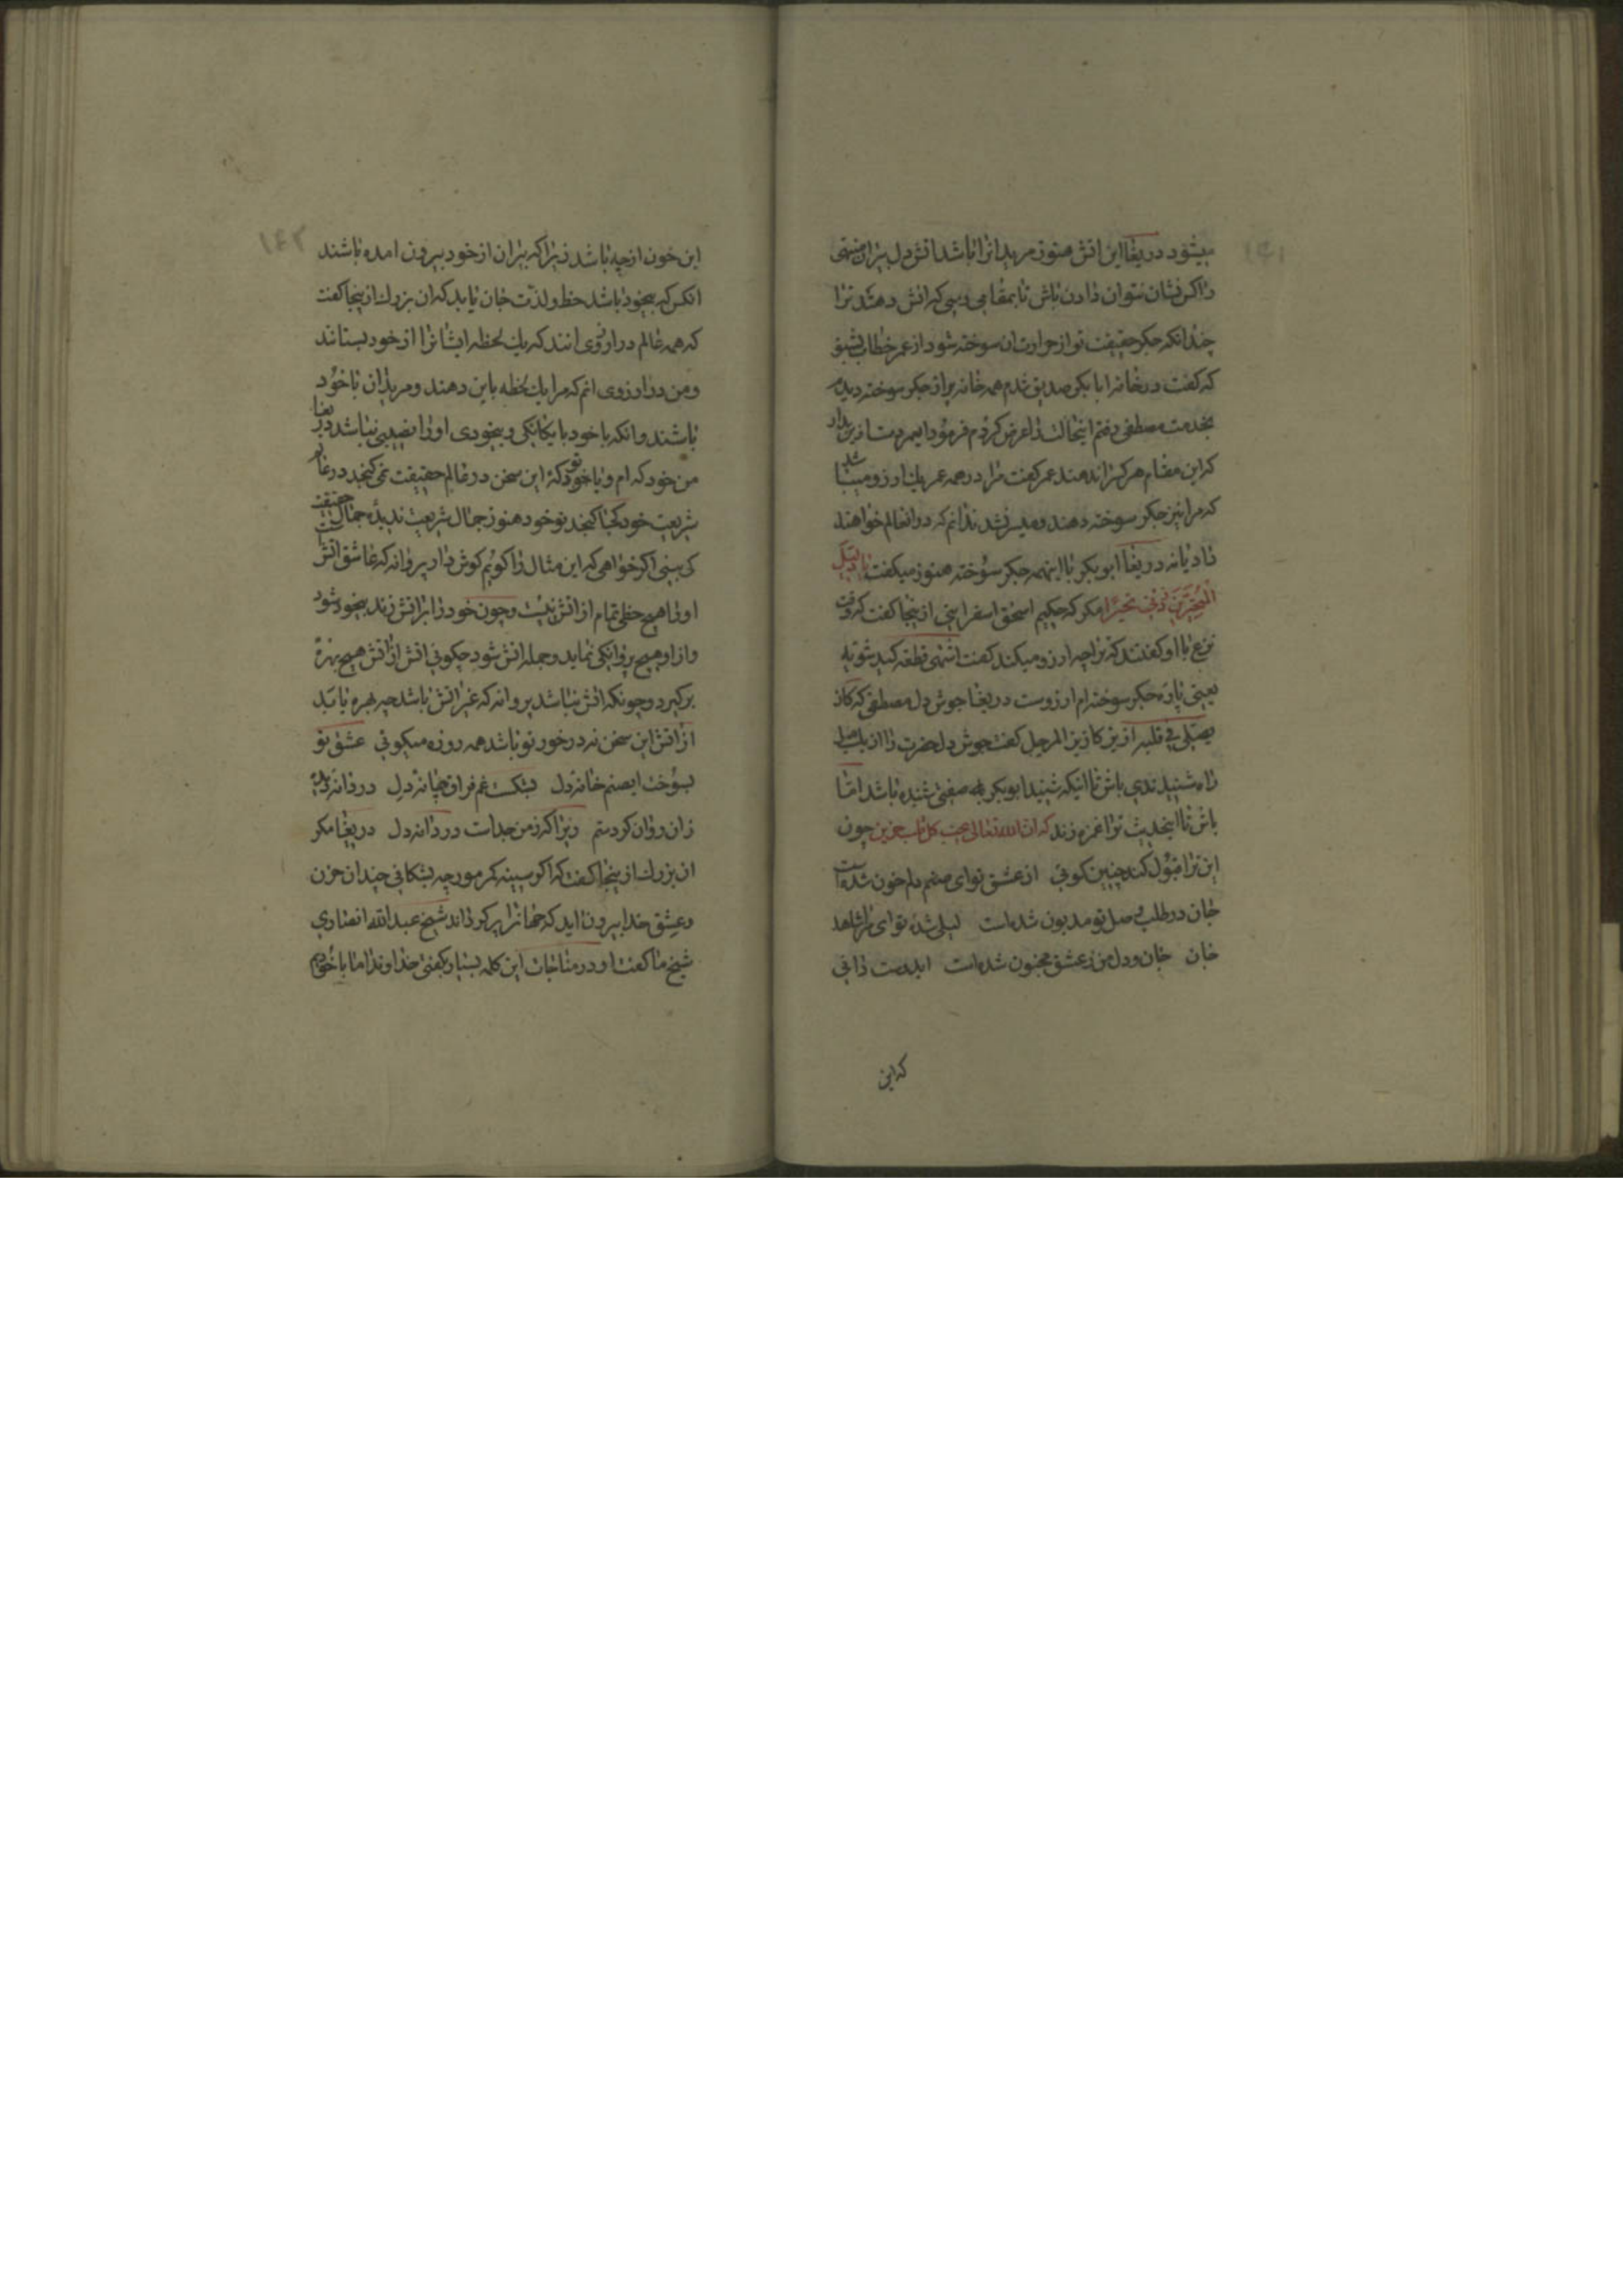 میشود دریغا این اتش هنوز مریدانرا باشد اتش دل پیران منتهی
را کس نشان نتوان دادن باش تا بمقامی رسی که اتش دهند ترا
چندانکه جکر حقیقت تو از حرارت ان سوخته شود از عمر خطاب بشنو
که کفت در خانه ابا بکر صدیق شدم همه خانه پر از جکر سوخته دیدم
بخدمت مصطفی رفتم اینحالت را عرض کردم فرمود ایعمر دست ازین بدار
که این مقام هر کس را ندهند عمر کفت مرا در همه عمر یک ارزو میباشد
که مرا نیز جکر سوخته دهند و میسر نشد ندانم که در انعالم خواهند
داد یا نه دریغا ابو بکر با اینهمه جکر سوخته هنوز میکفت یا دلیل
المتحیرین زدنی تحیرا مکر که حکیم اسحق اسفراینی از ینجا کفت که وقت
نزع با او کفتند که ترا چه ارزو میکند کفت اشتهی قطعة کبد مشویة
یعنی پاره جکر سوخته ام ارزوست دریغا جوش دل مصطفی که کان
یصلی فی قلبه ازیز کازیز المرجل کفت جوش دل حضرت را از یک میل
راه شنیدندی باش تا انیکه شنید ابو بکر صفتی شنیده باشد امّا
باش تا اینحدیث ترا غمزه زند که ان الله تعالی یحب کل قلب حزین چون
این ترا قبول کند چنین کوئی از عشق تو ای صنم دلم خون شده است
جان در طلب وصل تو مدیون شده است لیلی شدهٔ تو ای شاهد
جان جان و دل من ز عشق مجنون شده است ایدوست دانی
که این
۱۶۱
۱۶۲
این خون از چه باشد زیرا که پیران از خود بیرون امده باشند
انکس که بیخود باشد حظ و لذّت جان یابد که ان بزرک از ینجا کفت
که همه عالم در ارزوی انند که یک لحظه ایشانرا از خود بستانند
و من در ارزوی انم که مرا یک لحظه باین دهند و مریدان باخود
باشند و انکه باخود با یکانکی و بیخودی او را نصیبی نباشد دریغا
من خود که ام و یا تو خود کهٔ این سخن در عالم حقیقت نمی کنجد در عالم
شریعت خود کجا کنجد تو خود هنوز جمال شریعت ندیدهٔ جمال حقیقت
کی بینی اکر خواهی که این مثال را کویم کوش دار پروانه که عاشق اتش است
او را هیچ حظی تمام از اتش نیست و چون خود را بر اتش زند بیخود شود
و از او هیچ پروانکی نماید و جمله اتش شود چکوئی اتش از اتش هیچ بهره
برکیرد و چونکه اتش نباشد پروانه که غیر اتش باشد چه بهره یابد
از اتش این سخن نه در خور تو باشد همه روزه میکوئی عشق تو
بسوخت ایصنم خانه دل بشکست غم فراق پیمانه دل دردانه دیده
زان روان کردستم زیرا که ز من جداست دردانه دل دریغا مکر
ان بزرک از ینجا کفت که اکر سینه کرمورچه بشکافی چندان حزن
و عشق خدا بیرون اید که جهانرا پر کرداند شیخ عبد الله انصاری
شیخ ما کفت او در مناجات این کلمه بسیار بکفتی خداوندا ما با خودیم